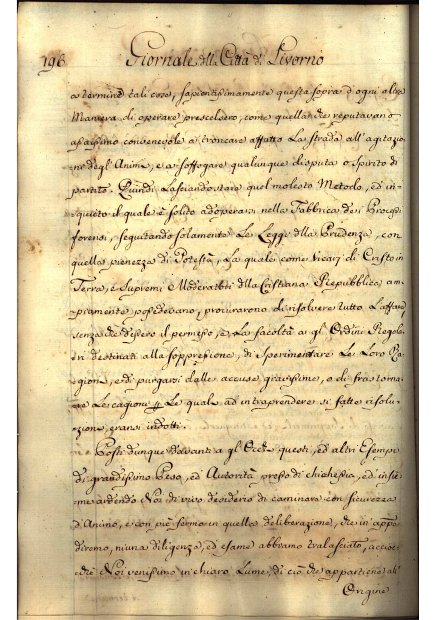 196 Giornale della Città di Livorno
a termine tali cose, sapientissimamente questa sopra d'ogni altra
Maniera di operare prescelsero, come quella che reputavano
assaissimo convenevole a troncare affatto la strada all'agitazio
ne degl'Animi, e a soffogare qualunque disputa o spirito di
partito. Quindi Lasciando stare quel molesto Metodo, ed in=
quieto il quale è solito adoperarsi nella Fabbrica de i Processi
forensi, seguitando solamente Le Leggi della Prudenza, con
quella pienezza di Potestà, La quale come Vicarj di Cristo in
Terra, e Supremi Moderatori della Cristiana Repubblica, am=
piamente possedevano, procurarono di risolvere tutto L'affare
senza che dessero il permesso, e La facoltà a gl'Ordini Regola=
ri destinati alla soppressione, di sperimentare Le Loro Ra=
gioni, e di purgarsi dalle accuse gravissime, o di frastorna=
re Le cagioni Le quale ad intraprendere si fatte risolu=
zione eransi indotti.
Posti dunque d'avanti a gl'Occhi questi, ed altri Esempi
di grandissimo Peso, ed Autorità presso di chichessia, ed insie=
me ardendo Noi di vivo desiderio di caminare con sicurezza
d'Animo, e con piè fermo in quella deliberazione, che in appo
diremo, niuna diligenza, ed esame abbiamo tralasciato, accio=
chè Noi venissimo in chiaro Lume, di ciò che appartiene all'
Origine